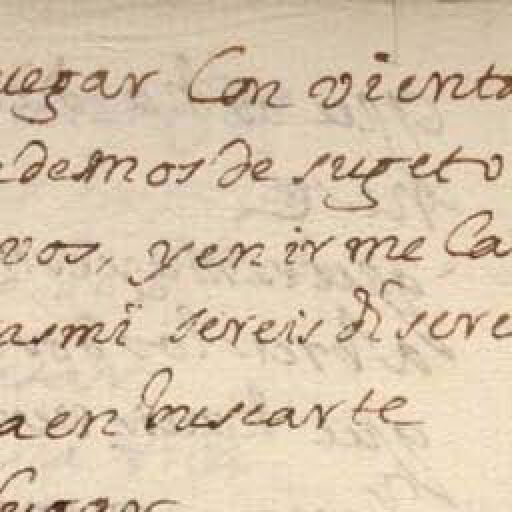 uegar Con viento
edemos de sugeto
vos, yen irme Ca
asmi sereis di sere
a en buscarte